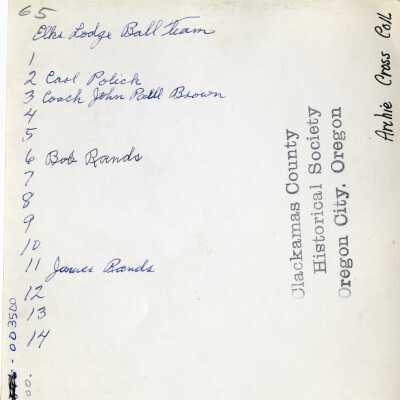 65
Elks Lodge Ball Team
1
2 Carl Polich
3 Coach John Bell Brown
4
5
6 Bob Rands
7
8
9
10
11 James Rands
12
13
14
Clackamas County
Historical Society
Oregon City, Oregon
Archie Cross Coll
- 003500
00.